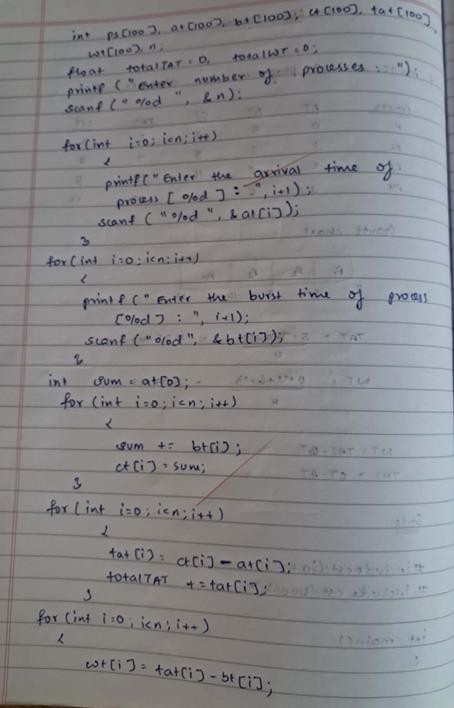 int ps[100], at[100], bt[100], ct[100], tat[100],
wt[100], n;
float totalTAT = 0, totalWT = 0;
printf ("Enter number of processes : ");
scanf ("%d", &n);
for(int i=0; i<n; i++)
{
printf("Enter the arrival time of
process [%d] : ", i+1);
scanf ("%d", &at[i]);
}
for(int i=0; i<n; i++)
{
printf ("Enter the burst time of process
[%d] : ", i+1);
scanf ("%d", &bt[i]);
}
int sum = at[0];
for (int i=0; i<n; i++)
{
sum += bt[i];
ct[i] = sum;
}
for (int i=0; i<n; i++)
{
tat[i] = ct[i] - at[i];
totalTAT += tat[i];
}
for (int i=0; i<n; i++)
{
wt[i] = tat[i] - bt[i];